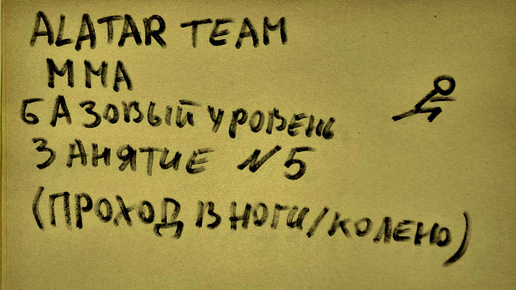 ALATAR TEAM
MMA
БАЗОВЫЙ УРОВЕНЬ
ЗАНЯТИЕ №5
(ПРОХОД В НОГИ/КОЛЕНО)